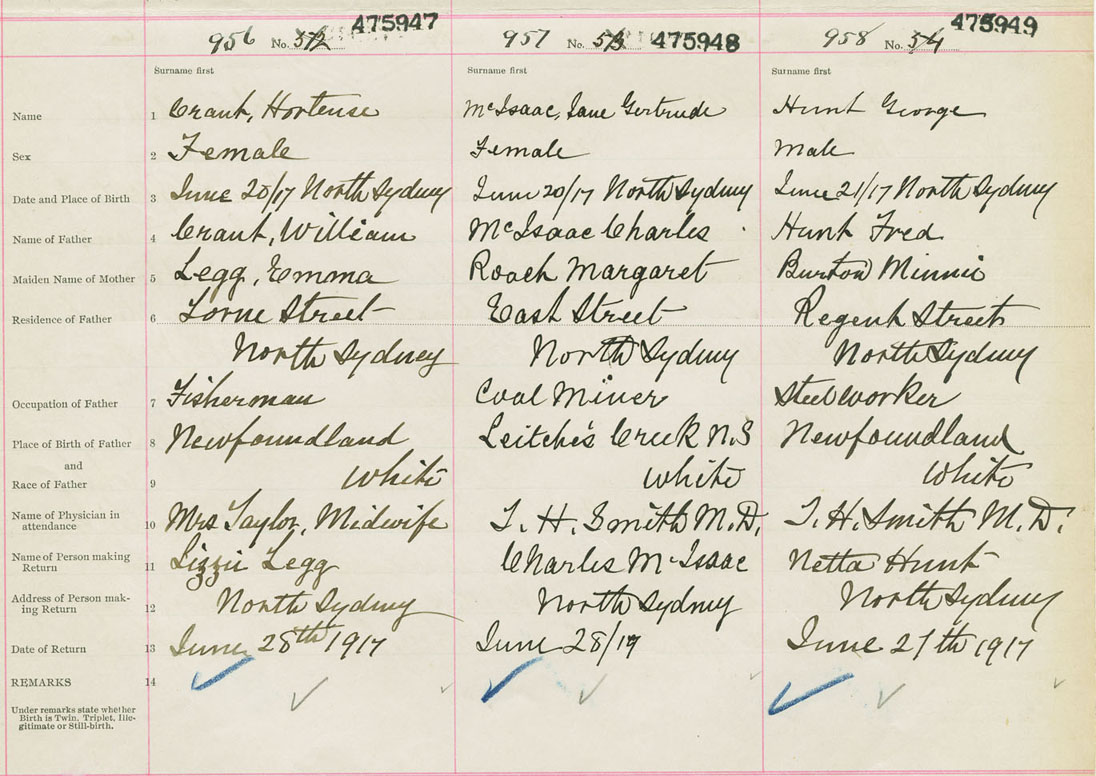 956 No. 5/2 475947 957 No. 5/3 475948 958 No. 5/4 475949
Surname first Surname first Surname first
Name 1 Crant, Hortense McIsaac, Jane Gertrude Hunt George
Sex 2 Female Female Male
Date and Place of Birth 3 June 20/17 North Sydney June 20/17 North Sydney June 21/17 North Sydney
Name of Father 4 Crant, William McIsaac Charles Hunt Fred
Maiden Name of Mother 5 Legg, Emma Roach Margaret Burton Minnie
Residence of Father 6 Lorne Street East Street Regent Street
North Sydney North Sydney North Sydney
Occupation of Father 7 Fisherman Coal Miner Steelworker
Place of Birth of Father 8 Newfoundland Leitche's Creek N.S Newfoundland
and
Race of Father 9 White White White
Name of Physician in
attendance 10 Mrs Taylor, Midwife T. H. Smith M.D. T. H. Smith M.D.
Name of Person making
Return 11 Lizzie Legg Charles McIsaac Netta Hunt
Address of Person mak-
ing Return 12 North Sydney North Sydney North Sydney
Date of Return 13 June 28th 1917 June 28/17 June 27th 1917
REMARKS 14
Under remarks state whether
Birth is Twin, Triplet, Ille-
gitimate or Still-birth.